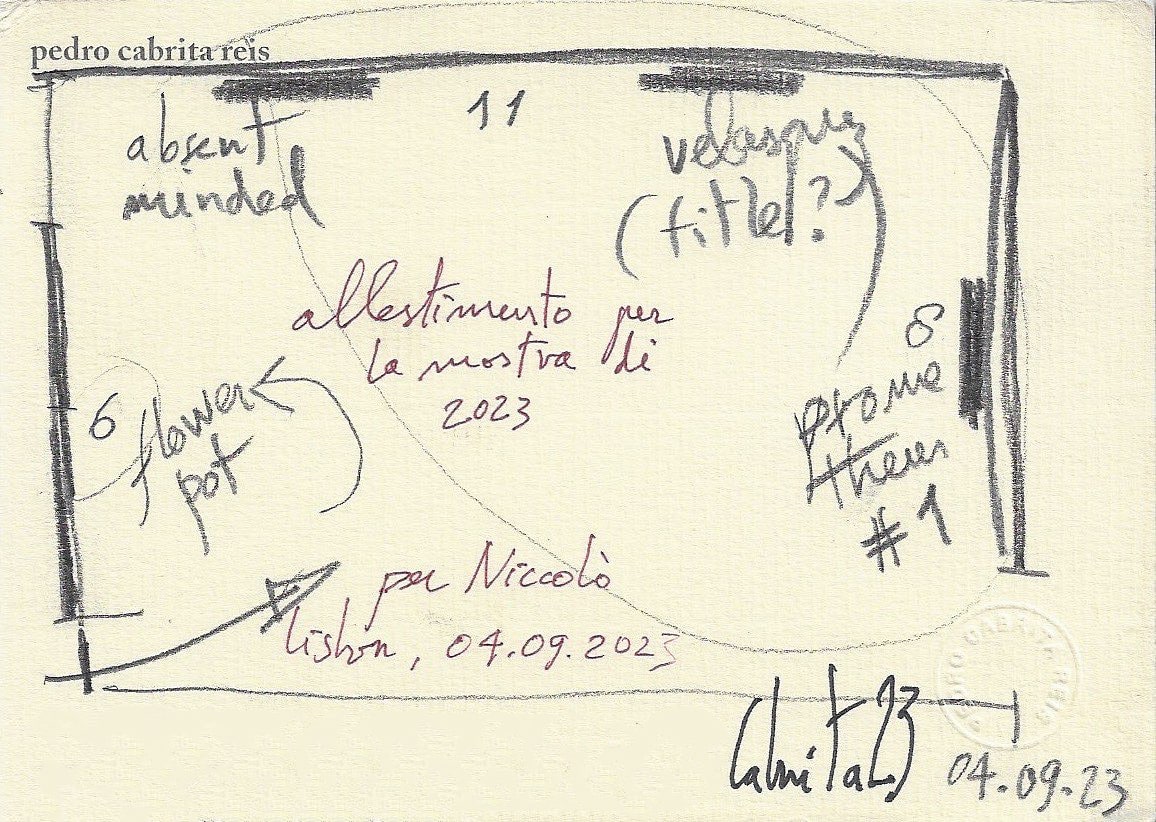 pedro cabrita reis
absent
minded
11
velasquez
(title?)
allestimento per
la mostra di
2023
6
flower
pot
8
Prome
theus
#1
per Niccolò
lisbon, 04.09.2023
Cabrita 23
04.09.23
PEDRO CABRITA REIS